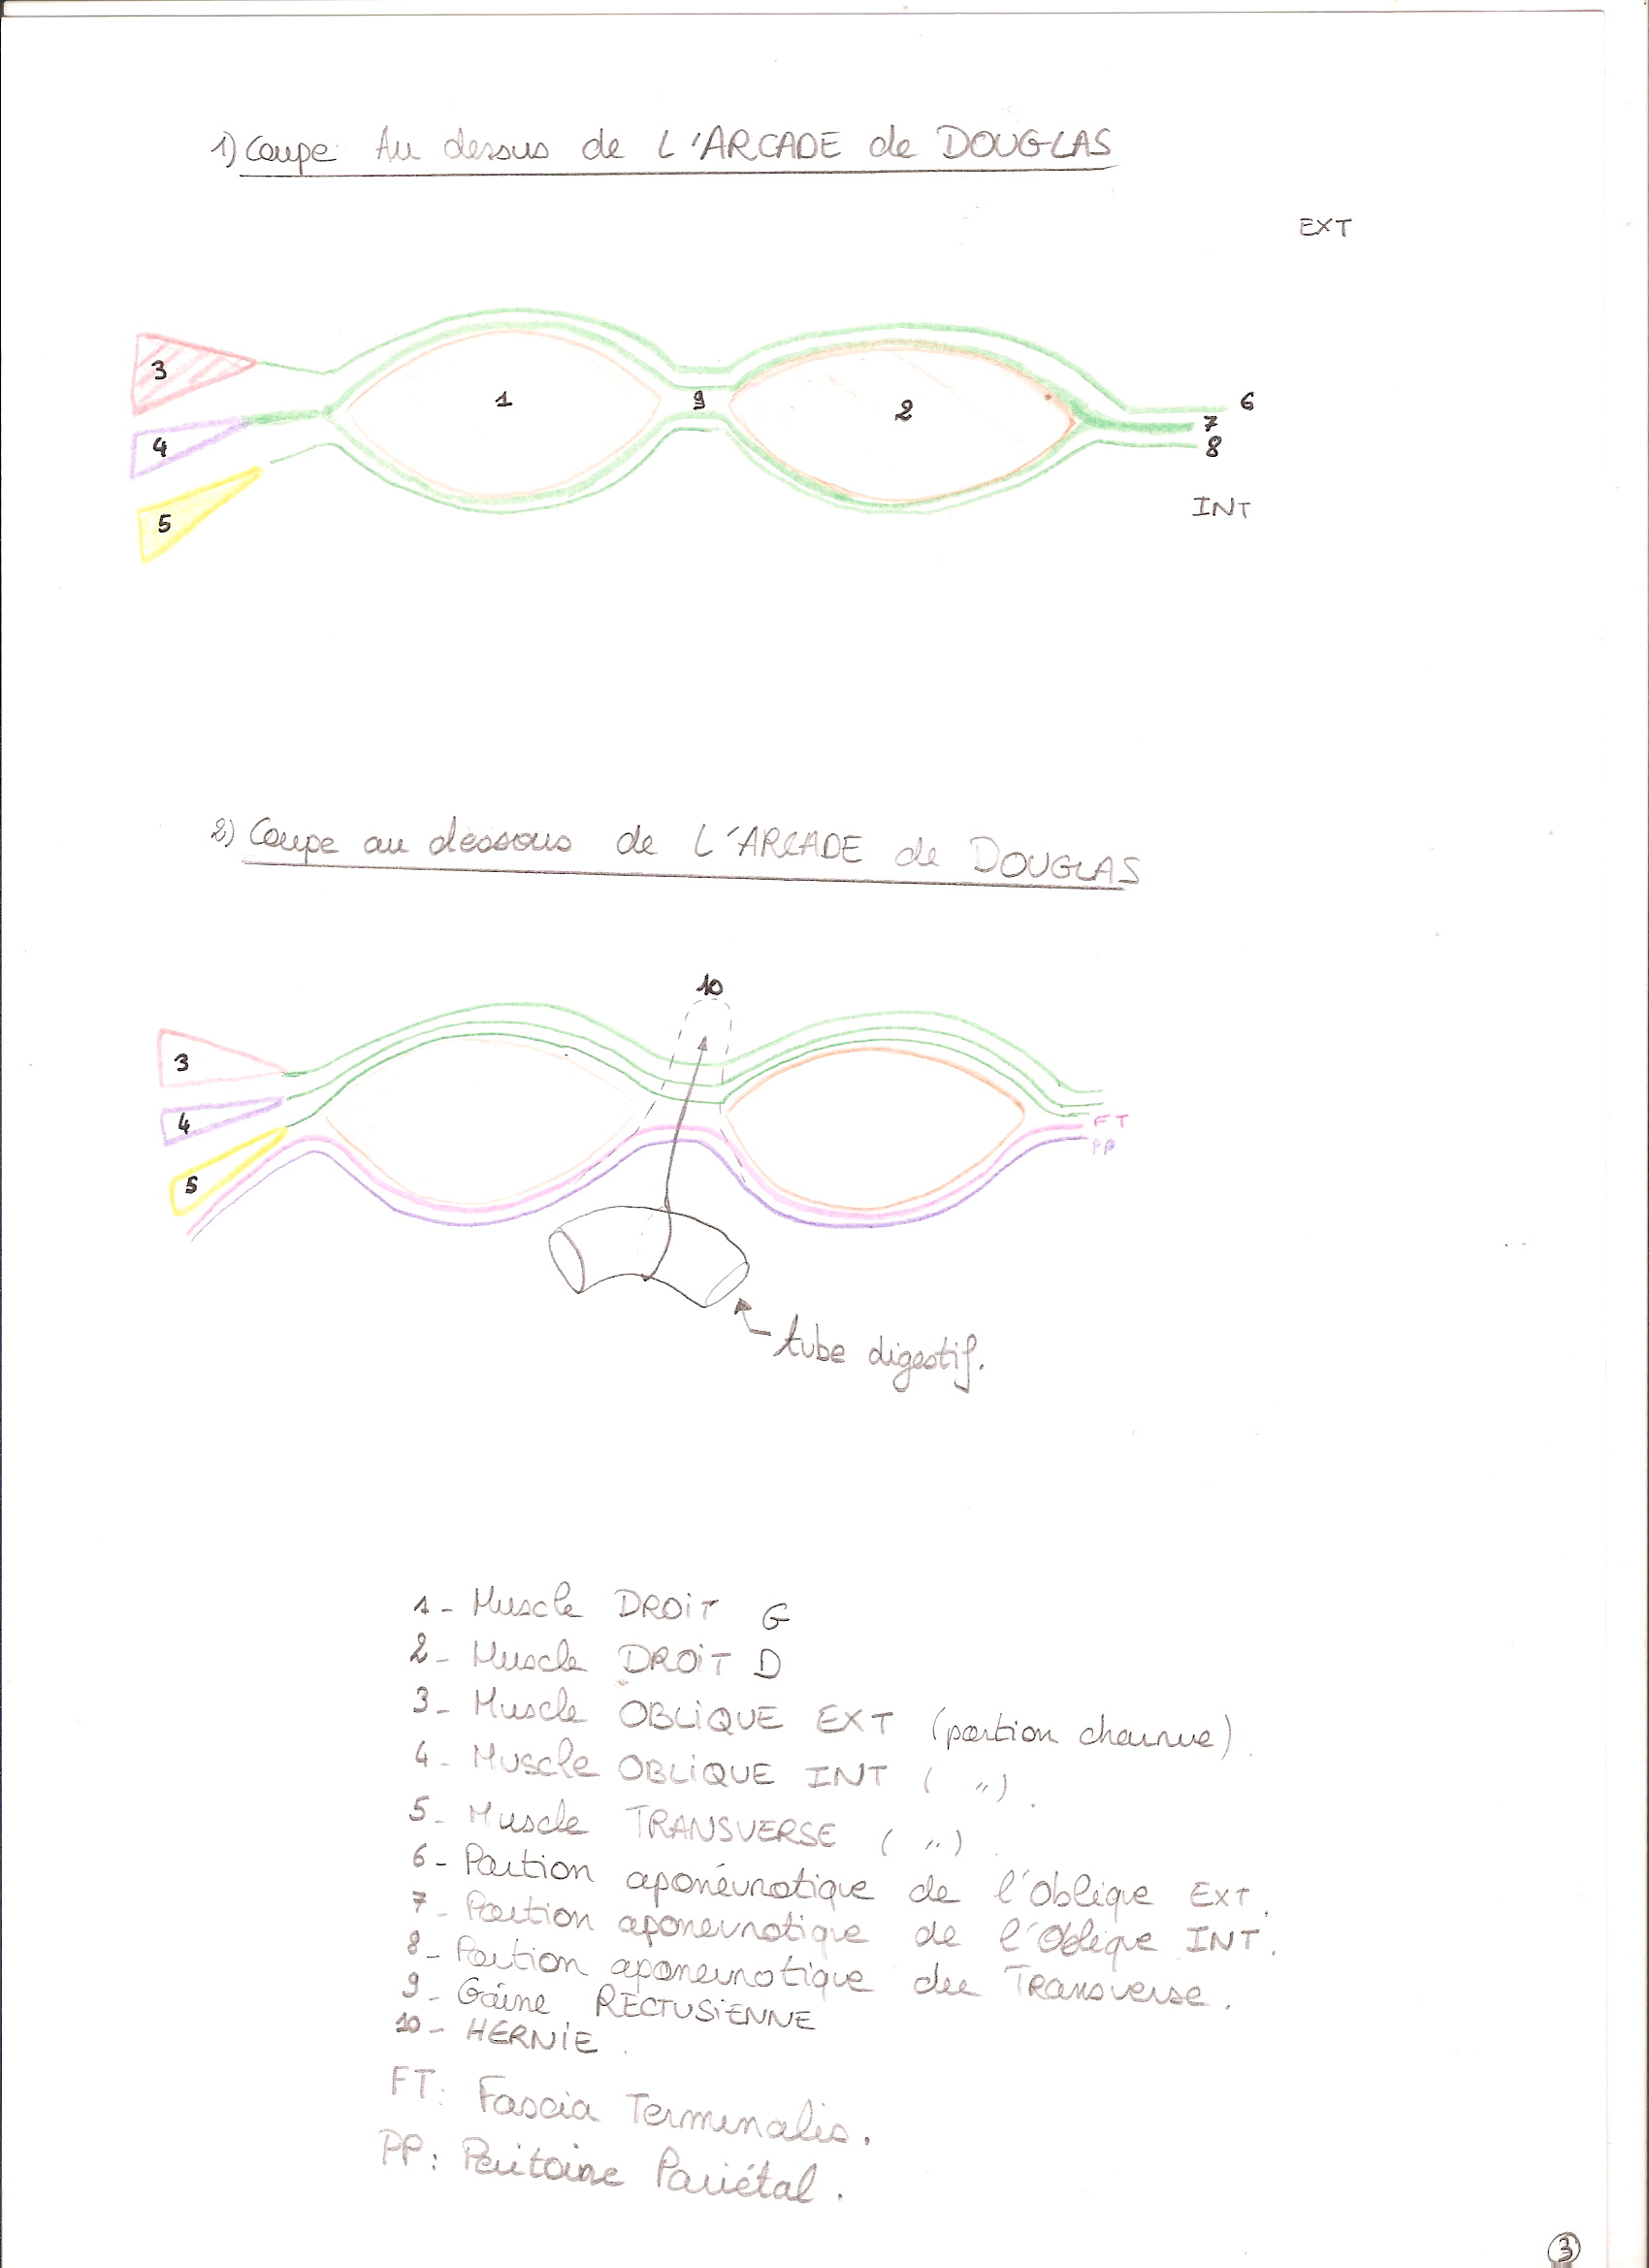 1) Coupe Au dessus de L'ARCADE de DOUGLAS
EXT
3
1
9
2
6
4
7
8
5
INT
2) Coupe au dessous de L'ARCADE de DOUGLAS
10
3
4
FT
PP
5
tube digestif.
1 - Muscle DROIT G
2 - Muscle DROIT D
3 - Muscle OBLIQUE EXT (portion charnue).
4 - Muscle OBLIQUE INT ( " ).
5 - Muscle TRANSVERSE ( " ).
6 - Portion aponévrotique de l'Oblique EXT.
7 - Portion aponevrotique de l'Oblique INT.
8 - Portion aponevrotique du Transverse.
9 - Gaine RECTUSIENNE
10 - HERNIE.
FT: Fascia Terminalis.
PP: Peritoine Pariétal.
3